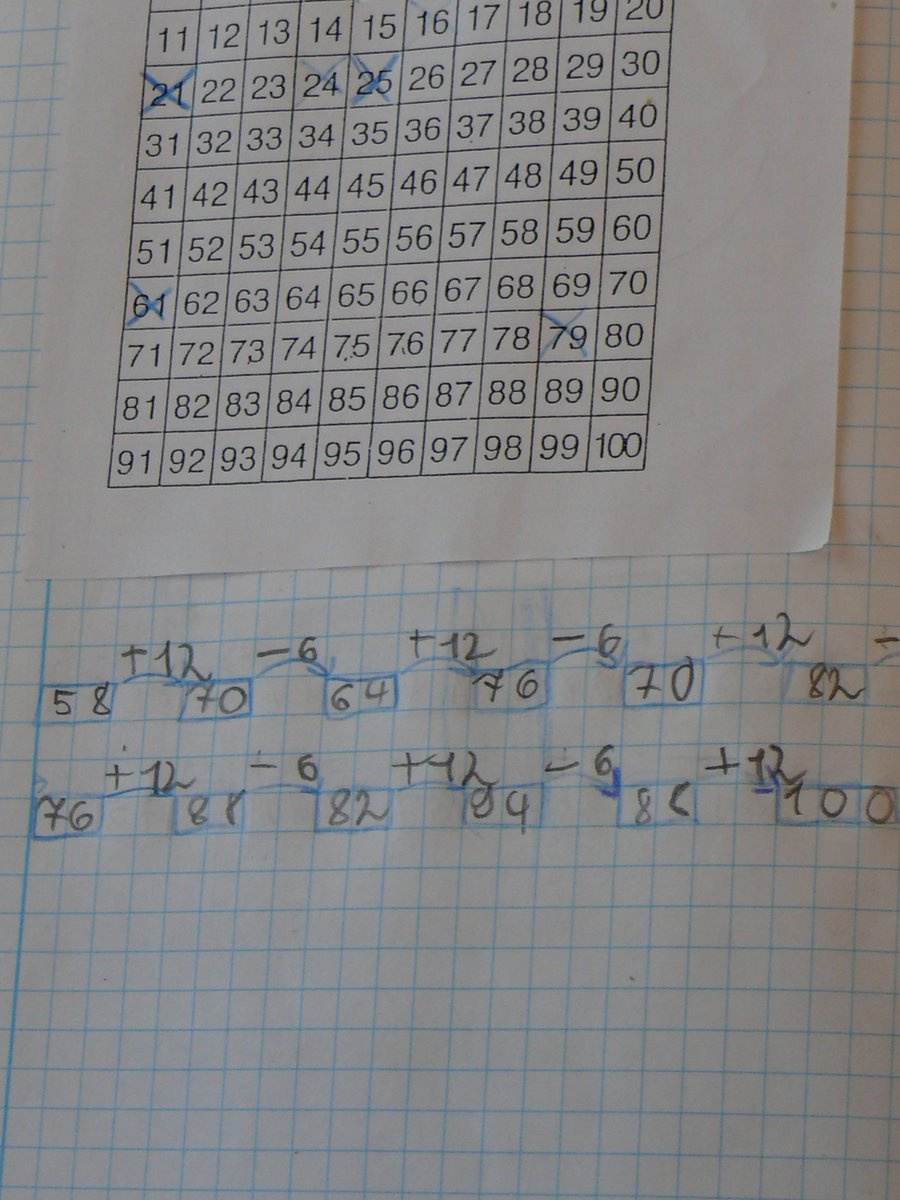 11 12 13 14 15 16 17 18 19 20
21 22 23 24 25 26 27 28 29 30
31 32 33 34 35 36 37 38 39 40
41 42 43 44 45 46 47 48 49 50
51 52 53 54 55 56 57 58 59 60
61 62 63 64 65 66 67 68 69 70
71 72 73 74 75 76 77 78 79 80
81 82 83 84 85 86 87 88 89 90
91 92 93 94 95 96 97 98 99 100
+12 -6 +12 -6 +12 -
58 70 64 76 70 82
+12 -6 +12 -6 +12
76 88 82 94 88 100